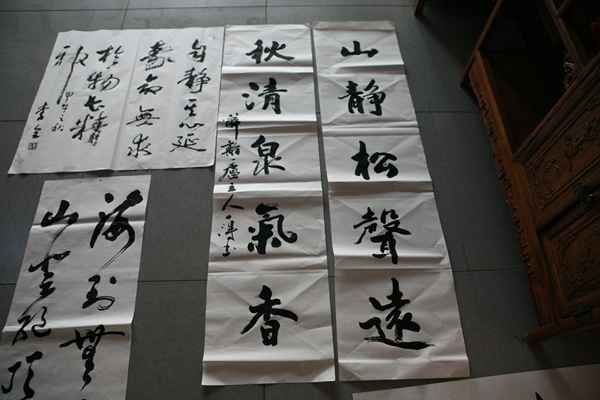 山静松聲遠
秋清泉氣香
自静其心延
壽命無求
於物長精
神
海到無
山登絕頂